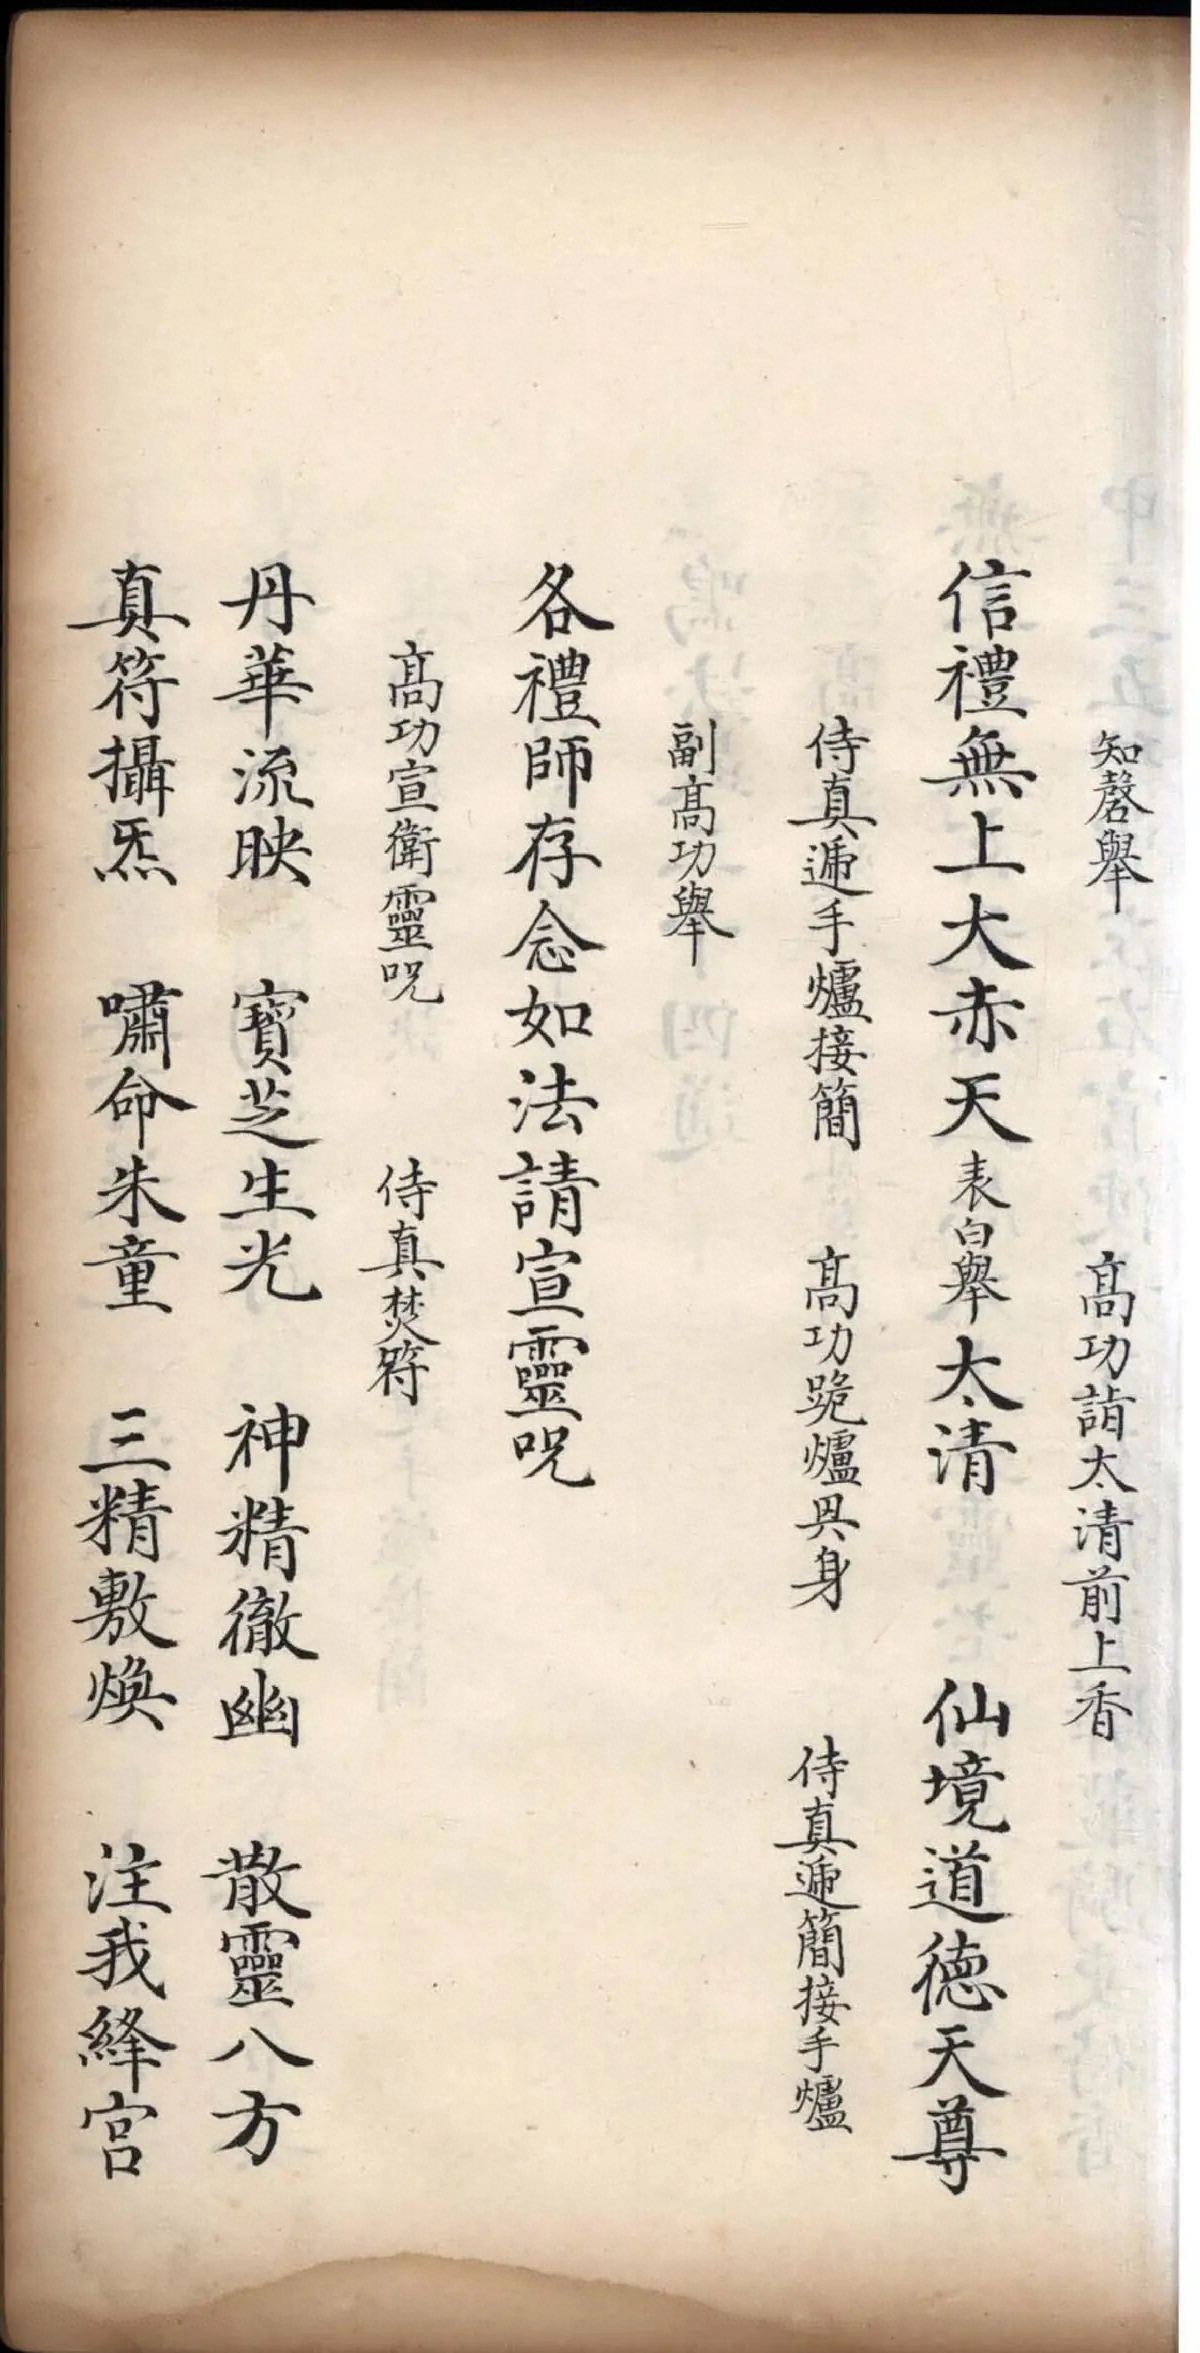 知磬舉　高功詣太清前上香
信禮無上大赤天表白舉太清　仙境道德天尊
侍真遞手爐接簡　高功跪爐具身　侍真遞簡接手爐
副高功舉
各禮師存念如法請宣靈咒
高功宣衛靈咒　侍真焚符
丹華流映　寶芝生光　神精徹幽　散靈八方
真符攝炁　嘯命朱童　三精敷煥　注我絳宮